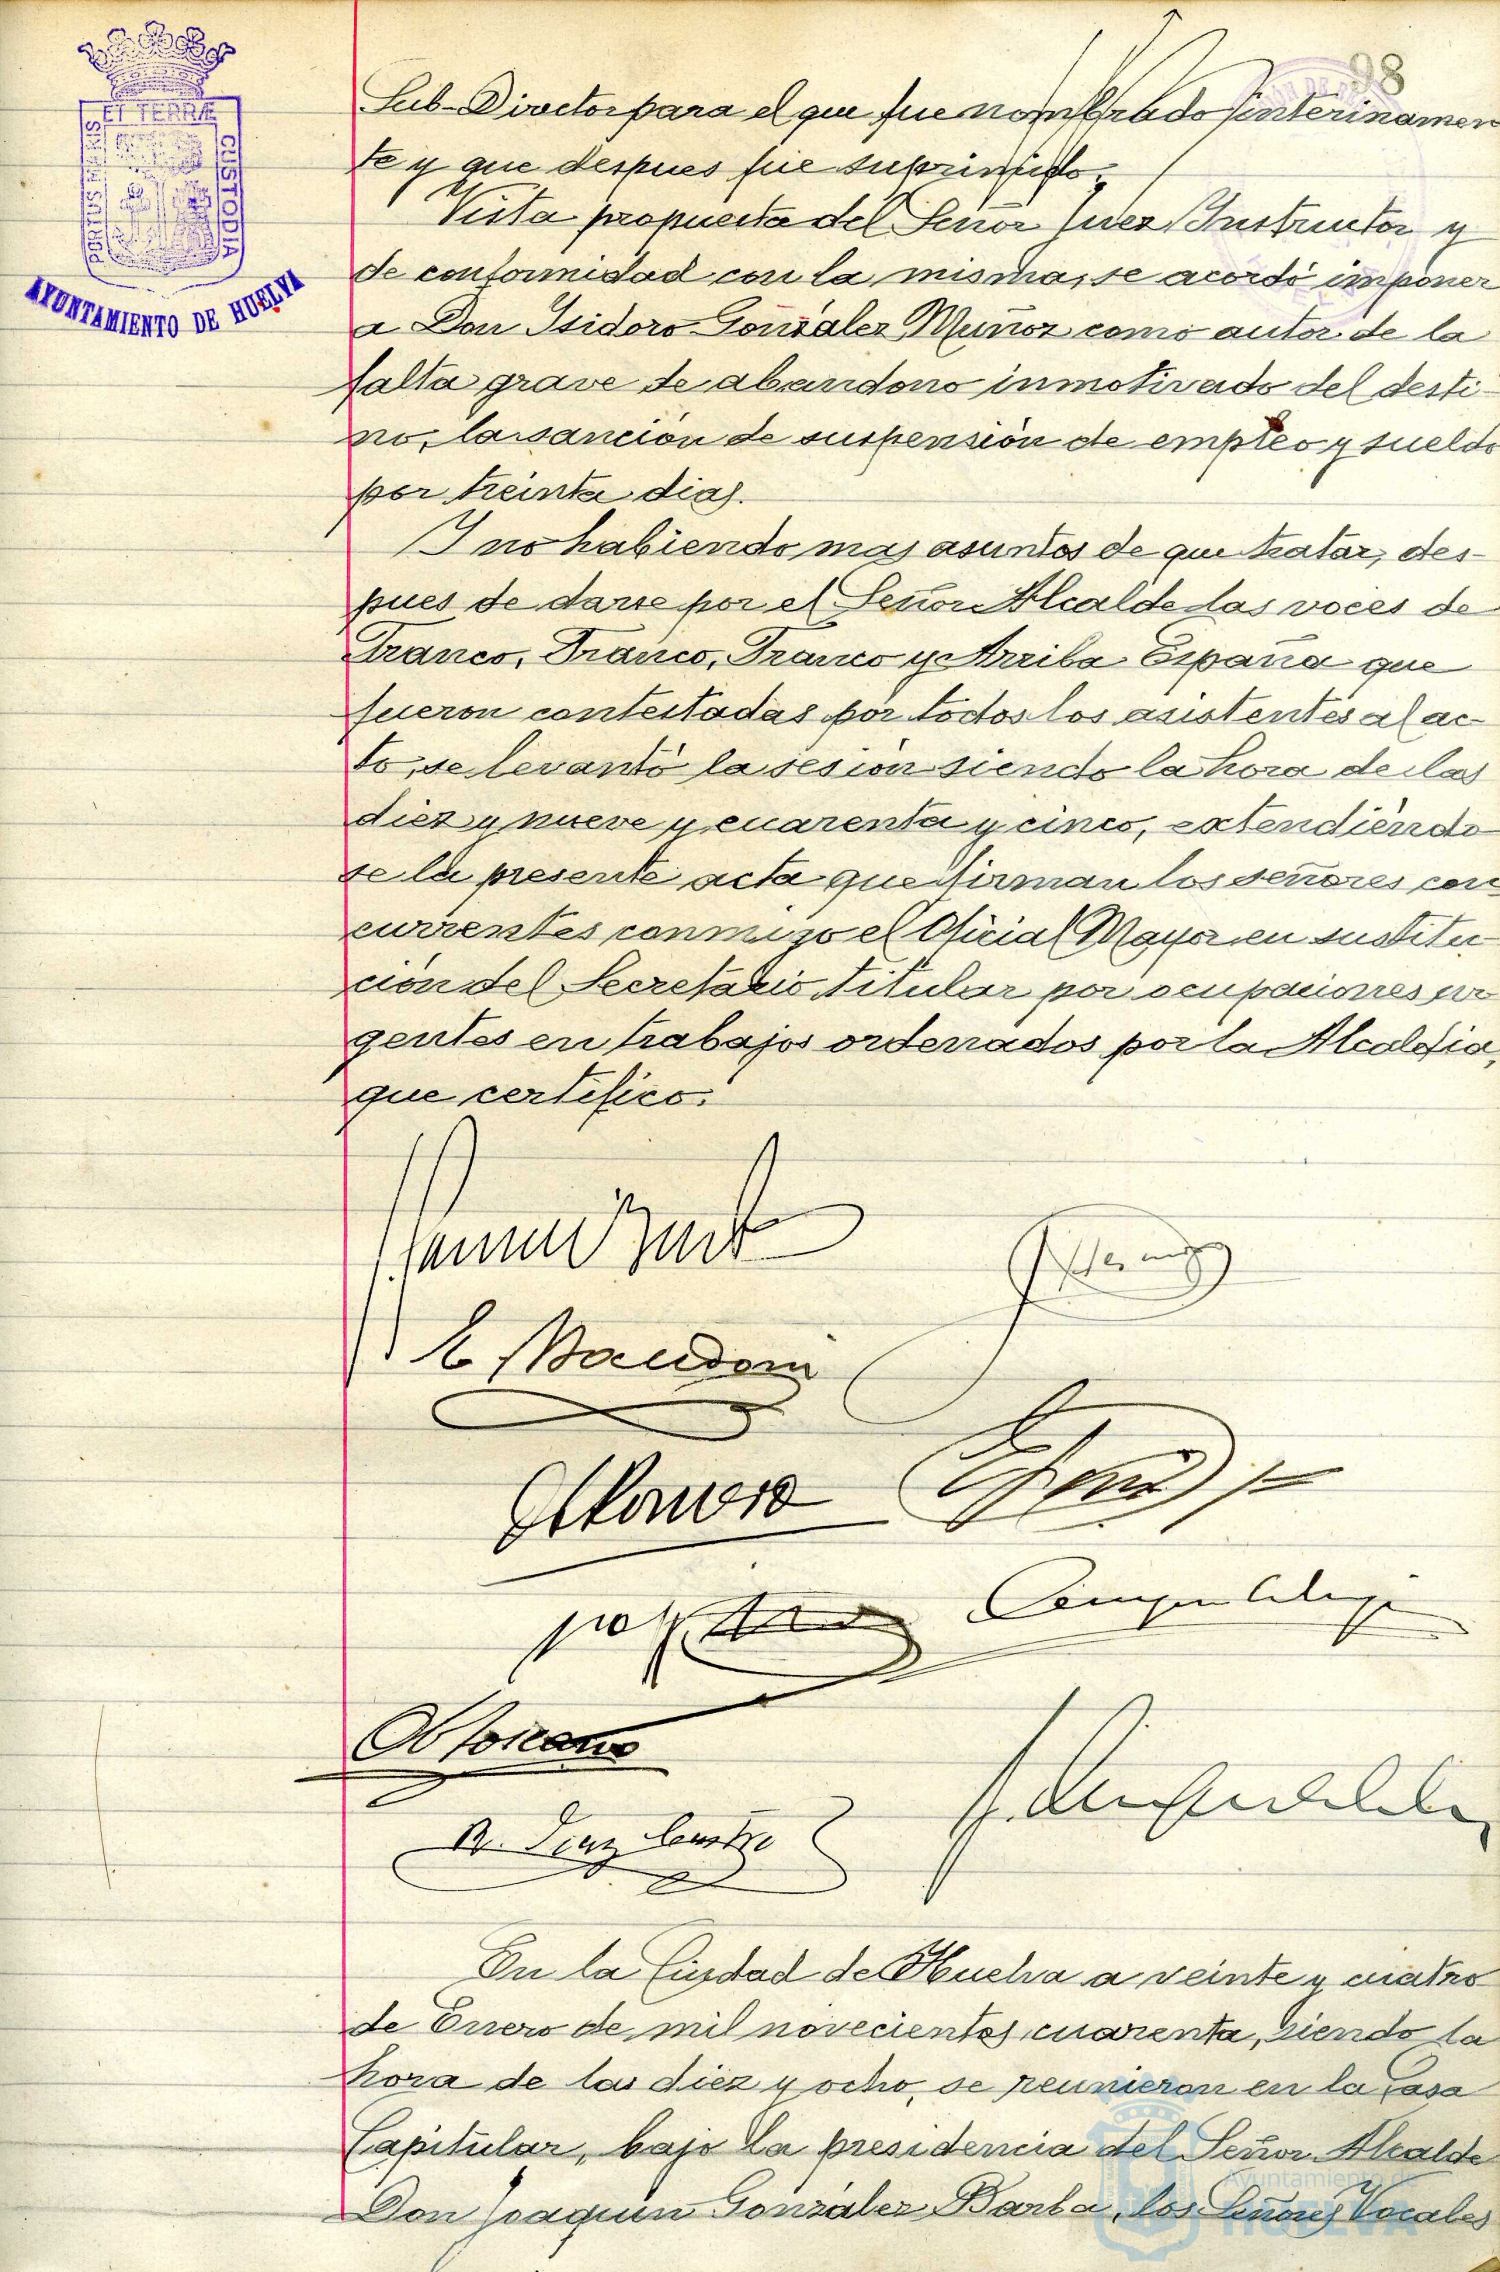 98
ET TERRÆ
PORTUS MARIS
CUSTODIA
AYUNTAMIENTO DE HUELVA
Sub-Director para el que fue nombrado interinamen
te y que despues fué suprimido.
Vista propuesta del Señor Juez Instructor y
de conformidad con la misma, se acordó imponer
a Don Isidoro González Muñoz como autor de la
falta grave de abandono inmotivado del desti-
no, la sanción de suspensión de empleo y sueldo
por treinta dias.
Y no habiendo mas asuntos de que tratar, des-
pues de darse por el Señor Alcalde las voces de
Franco, Franco, Franco y Arriba España que
fueron contestadas por todos los asistentes al ac-
to, se levantó la sesión siendo la hora de las
diez y nueve y cuarenta y cinco, extendiéndo
se la presente acta que firman los señores con
currentes conmigo el Oficial Mayor en sustitu-
ción del Secretario titular por ocupaciones ur
gentes en trabajos ordenados por la Alcaldia,
que certifico.
E. Mandoni
Romero
R. Diaz Castro
En la Ciudad de Huelva a veinte y cuatro
de Enero de mil novecientos cuarenta, siendo la
hora de las diez y ocho, se reunieron en la Casa
Capitular, bajo la presidencia del Señor Alcalde
Don Joaquin González Barba, los Señores Vocales
Ayuntamiento de
HUELVA